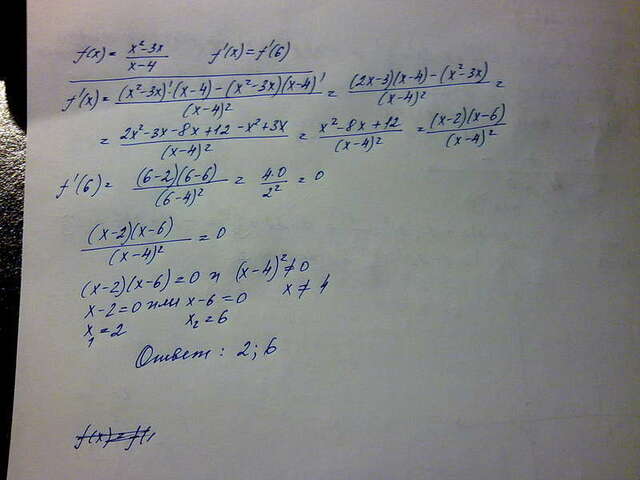 f(x) = (x²-3x)/(x-4) f'(x) = f'(6)
f'(x) = ((x²-3x)'·(x-4) - (x²-3x)(x-4)')/(x-4)² = ((2x-3)(x-4) - (x²-3x))/(x-4)² =
= (2x²-3x-8x+12-x²+3x)/(x-4)² = (x²-8x+12)/(x-4)² = (x-2)(x-6)/(x-4)²
f'(6) = (6-2)(6-6)/(6-4)² = 4·0/2² = 0
(x-2)(x-6)/(x-4)² = 0
(x-2)(x-6) = 0 и (x-4)² ≠ 0
x-2=0 или x-6=0 x ≠ 4
x₁=2 x₂=6
Ответ: 2; 6
f(x) = f(